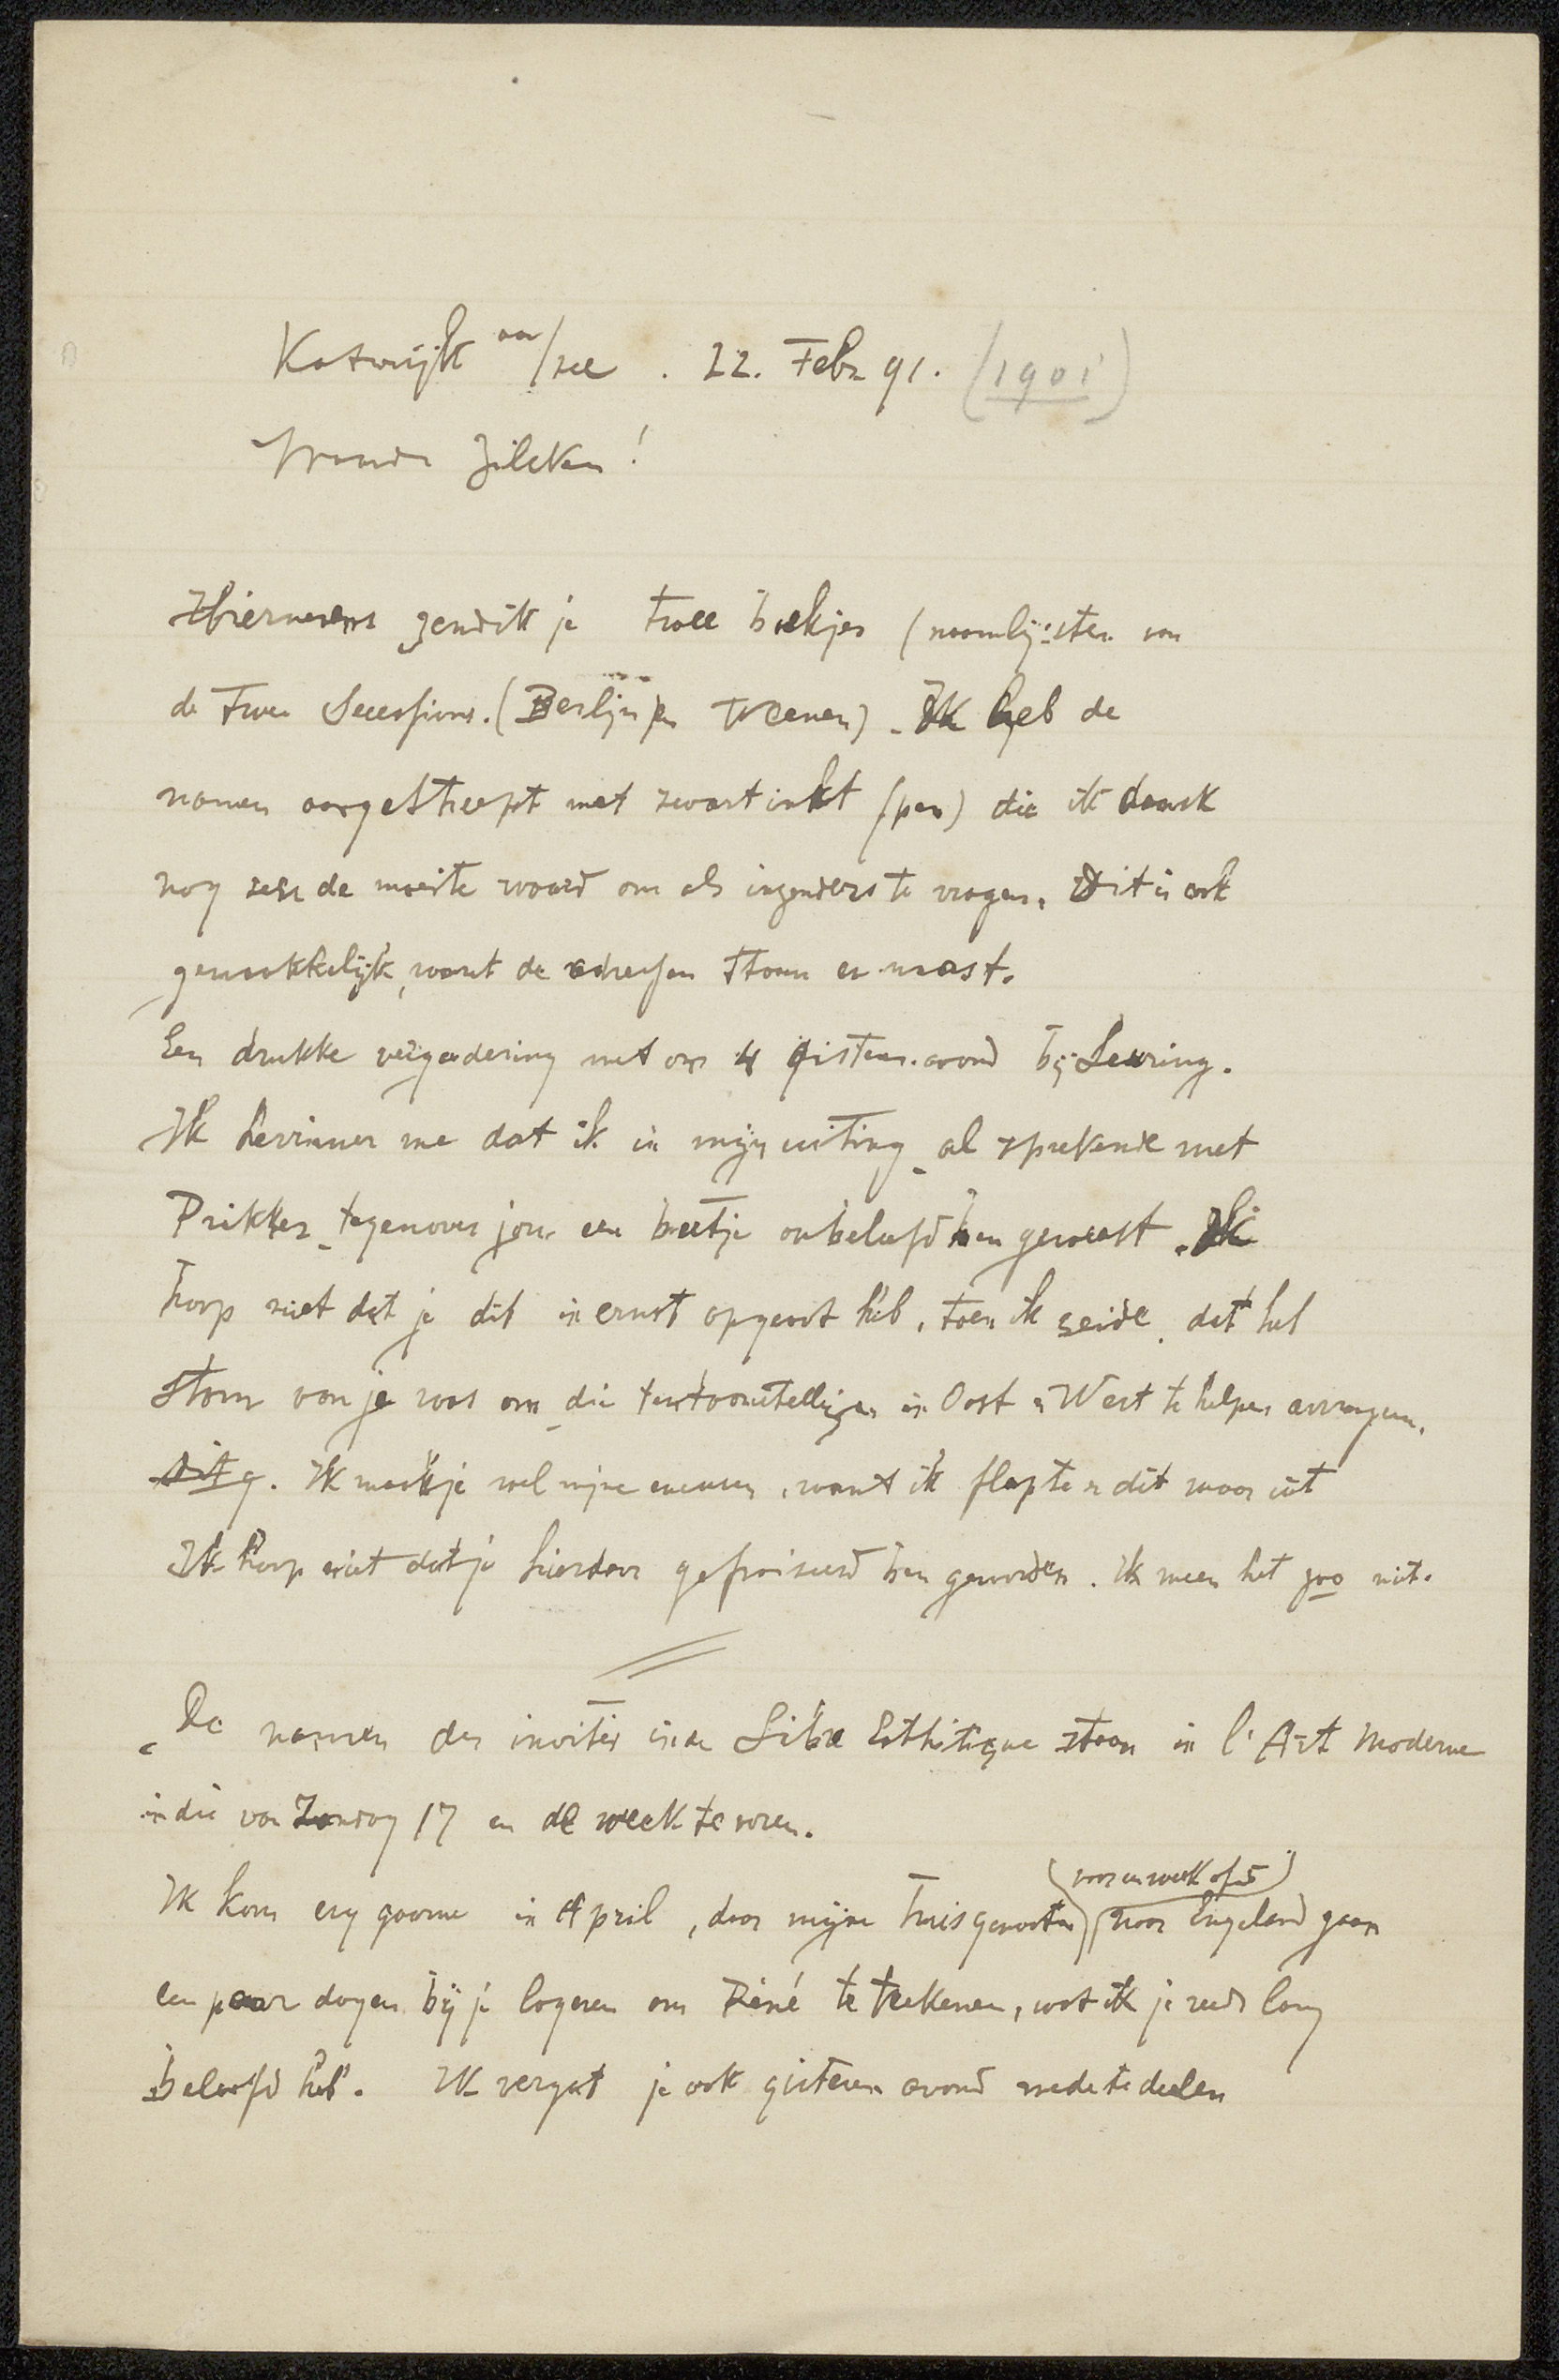 Katwijk aan/zee . 22. Febr 91. (1901)
Waarde Zilcken!
Hiernevens zend ik je twee boekjes (naamlijsten van
de twee Secessions. (Berlijn en Weenen). Ik heb de
namen aangestreept met zwart inkt (pen) die ik denk
nog zeer de moeite waard om als inzenders te vragen. Dit is ook
gemakkelijk, want de adressen staan er naast.
Een drukke vergadering met ons 4 gisteren avond bij Leuring.
Ik herinner me dat ik in mijn uiting al sprekende met
Prikker tegenover jou een beetje onbeleefd ben geweest. Ik
hoop niet dat je dit in ernst opgevat heb, toen ik zeide, dat het
stom van je was om die tentoonstellingen in Oost & West te helpen arrangeeren.
Ik mach je wel mijne meenen, want ik flapte er dit maar uit
Ik hoop niet dat je hierdoor gefroisseerd ben geworden. Ik meen het zoo niet.
De namen der invités in de Libre Esthétique staan in l'Art Moderne
in die van Zondag 17 en de week te voren.
(voor een week of 5)
Ik kom erg gaarne in April, daar mijne huisgenooten naar Engeland gaan
een paar dagen bij je logeren om Réné te teekenen, wat ik je reeds lang
beloofd heb. Ik vergat je ook gisteren avond mede te deelen